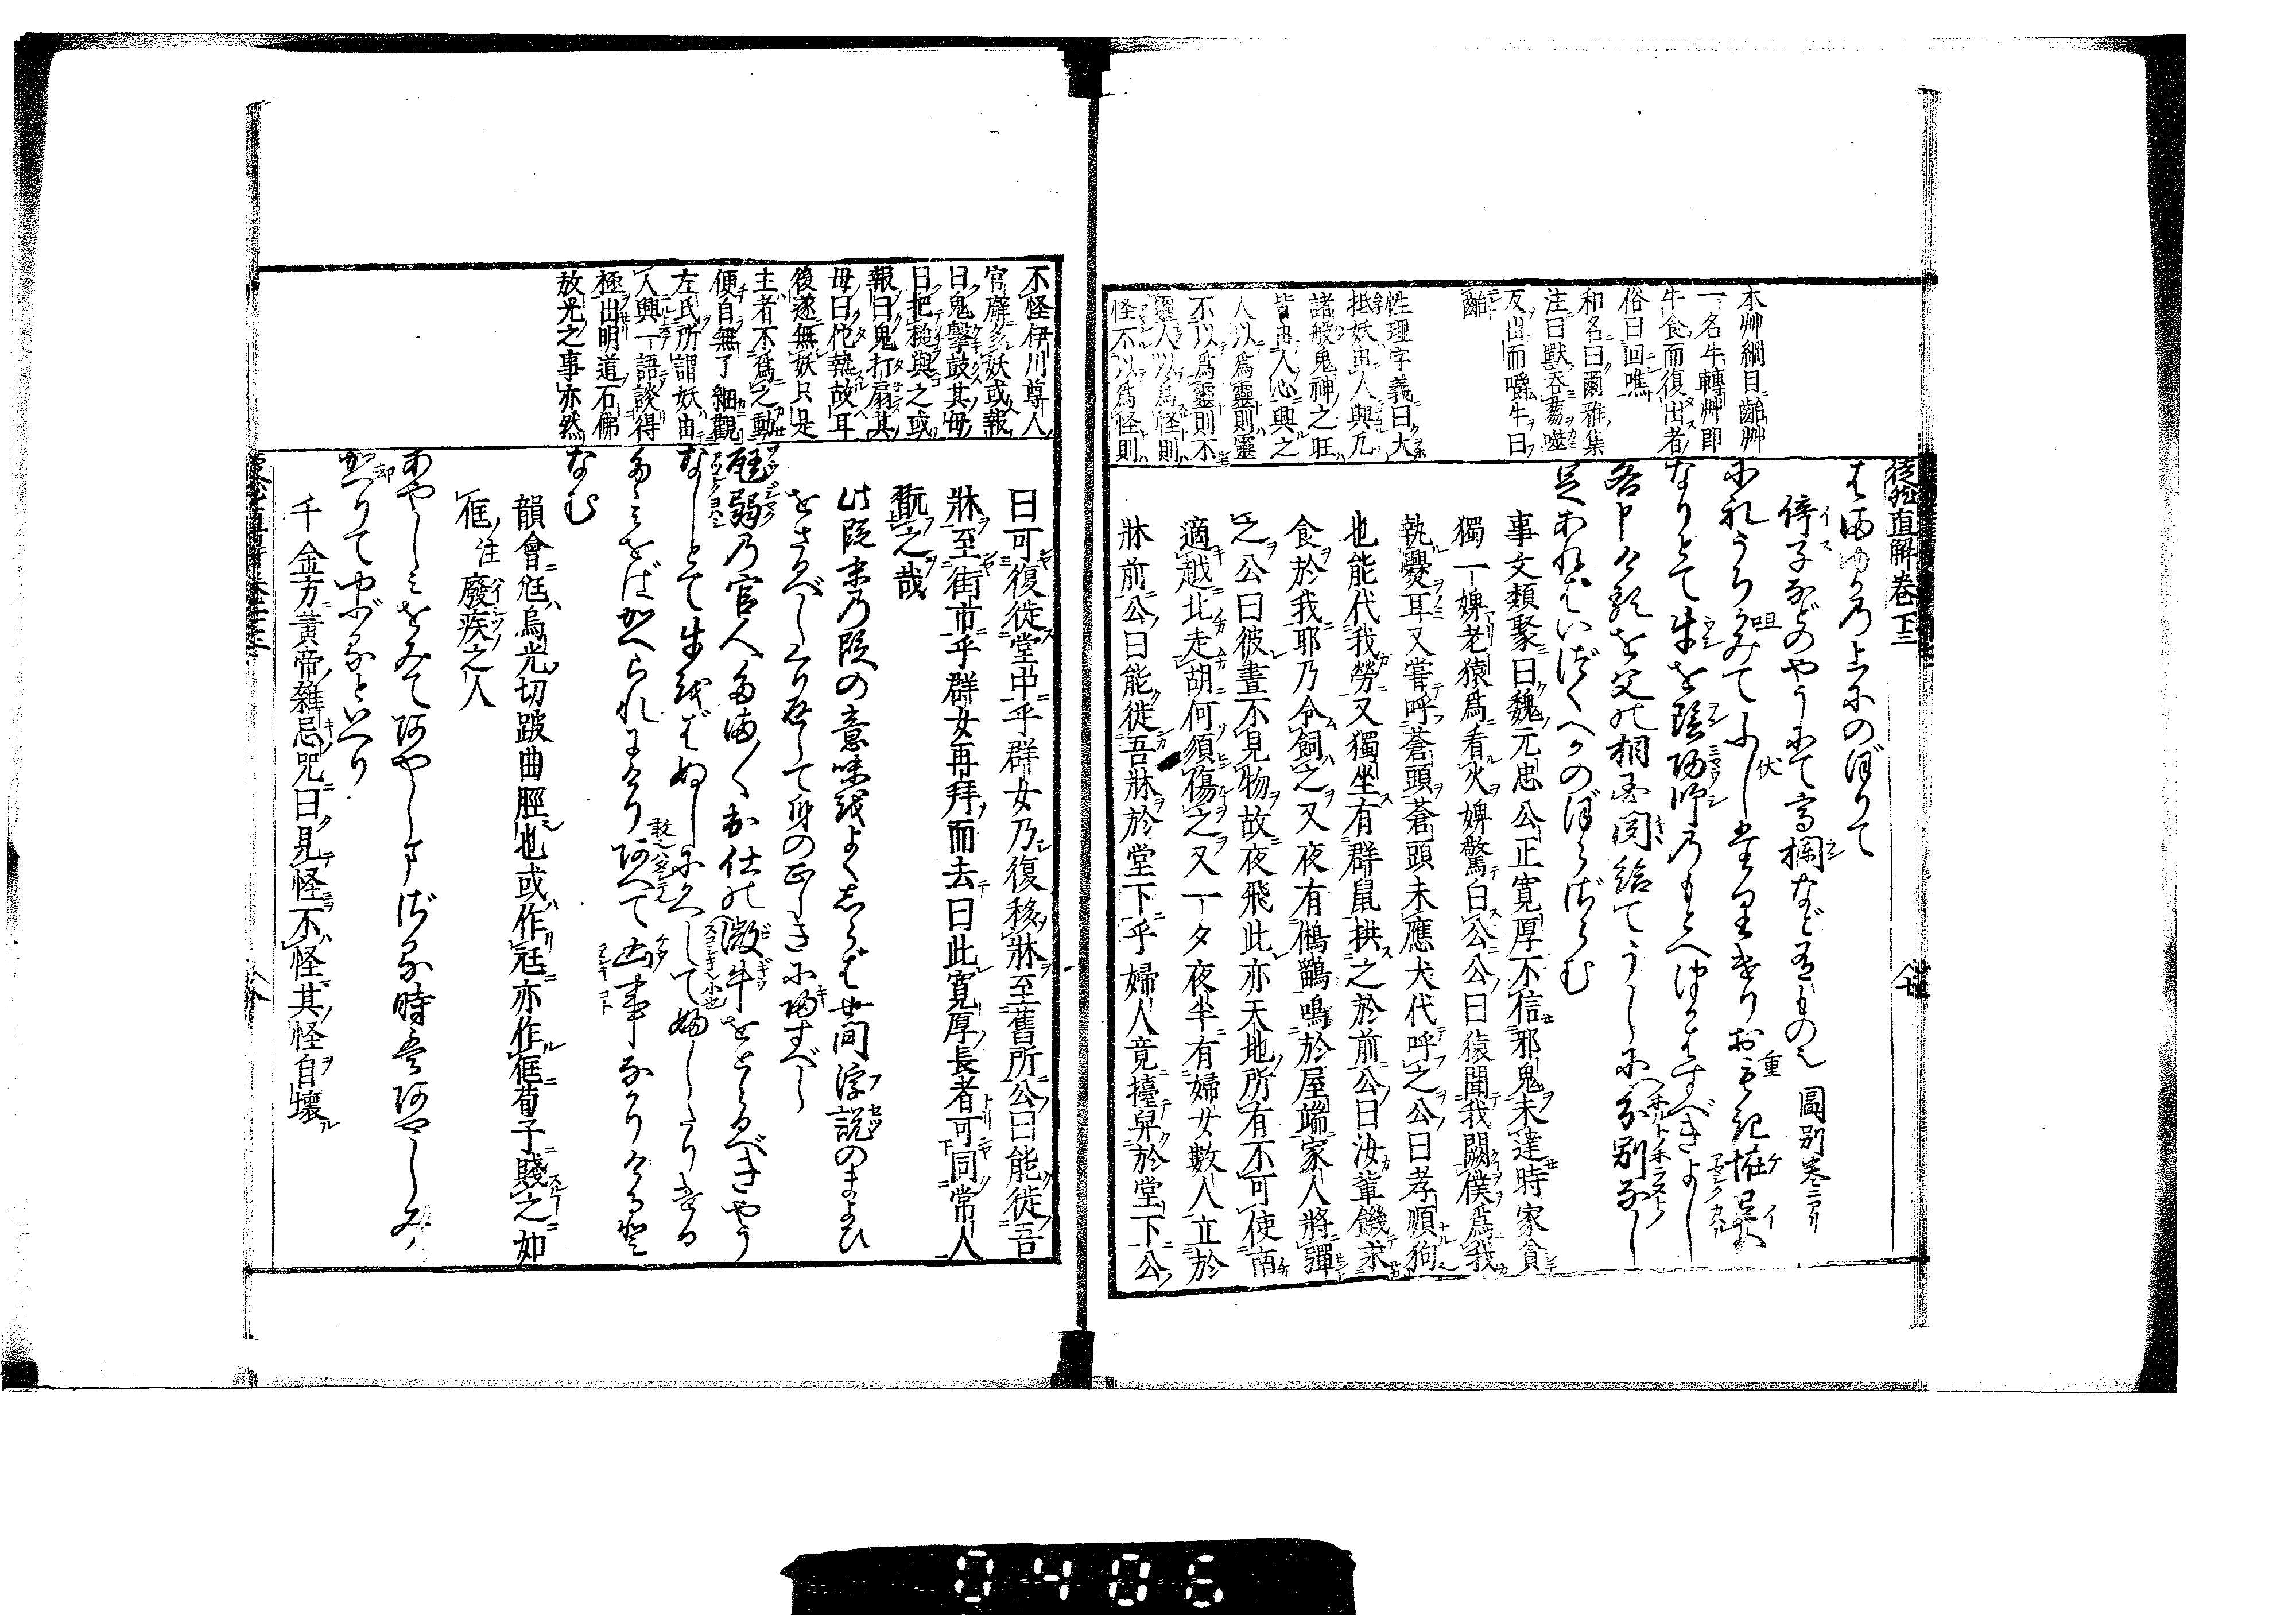 徒然直解巻下三
本艸綱目齝艸
一名牛轉艸即
牛食而復出者
俗曰回噍
和名曰爾雅集
注曰獸呑蒭噬
反出而嚼牛曰
齝
性理字義曰大
抵妖由人興凡
諸般鬼神之旺
皆由人心興之
人以爲靈則靈
不以爲靈則不
靈人以爲怪則
怪不以爲怪則
はまゆかの上にのぼりて
停子などのやうにて高欄など有もの也 圖別巻ニアリ
にれうちかみてふしたりけりおもき恠異
なりとて牛を陰陽師のもとへつかはすべきよし
各申けるを父の相国聞給てうしに分別なし
足あればいづくへかのぼらざらむ
事文類聚曰魏元忠公正寛厚不信邪鬼未達時家貧
獨一婢老猿爲看火婢驚白公公曰猿聞我闕僕爲我
執爨耳又嘗呼蒼頭蒼頭未應犬代呼之公曰孝順狗
也能代我勞又獨坐有群鼠拱之於前公曰汝輩饑求
食於我耶乃令飼之又夜有鵂鶹鳴於屋端家人將彈
之公曰彼晝不見物故夜飛此亦天地所有不可使南
適越北走胡何須傷之又一夕夜半有婦女數人立於
牀前公曰能徙吾牀於堂下乎婦人竟擡牀於堂下公
不怪伊川尊人
官廨多妖或報
曰鬼擊鼓其母
曰把槌與之或
報曰鬼打扇其
母曰他熱故耳
後遂無妖只是
主者不爲之動
便自無了細觀
左氏所謂妖由
人興一語談得
極出明道石佛
放光之事亦然
曰可復徙堂中乎群女乃復移牀至舊所公曰能徙吾
牀至街市乎群女再拜而去曰此寛厚長者可同常人
翫之哉
此段末の段の意味能よくしらば世間浮説のまよひ
をさるべし立返して身の正しきに帰すべし
尫弱の官人たまたま出仕の微牛をとらるべきやう
なしとて牛をばぬしにかへして婦したりける
たゝみをばかへられにけりあへて凶事なかりけると
なむ
韻會尫烏光切跛曲脛也或作尩亦作㑌荀子賤之如
㑌注廢疾之人
あやしみをみてあやしまざる時はあやしみ
かへりてやぶるといへり
千金方黃帝雜忌咒曰見怪不怪其怪自壞
0406